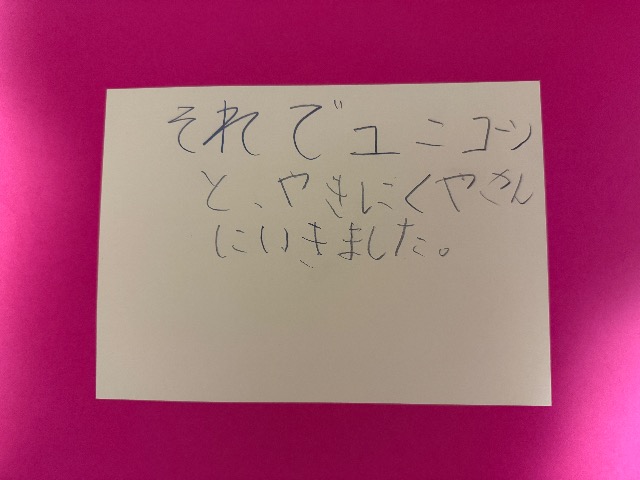 それでユニコーン
と、やきにくやさん
にいきました。